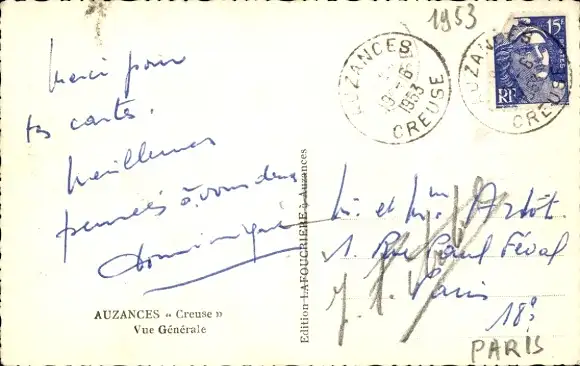 Merci pour
tes cartes.
Meilleures
pensées à vous deux
Dominique
AUZANCES « Creuse »
Vue Générale
Edition LAFOUCRIERE à Auzances
1953
AUZANCES
-6
1953
CREUSE
15F
POSTES
RF
AUZANCES
CREUSE
M. et Mme
1. Rue Paul Féval
Paris
18e
PARIS